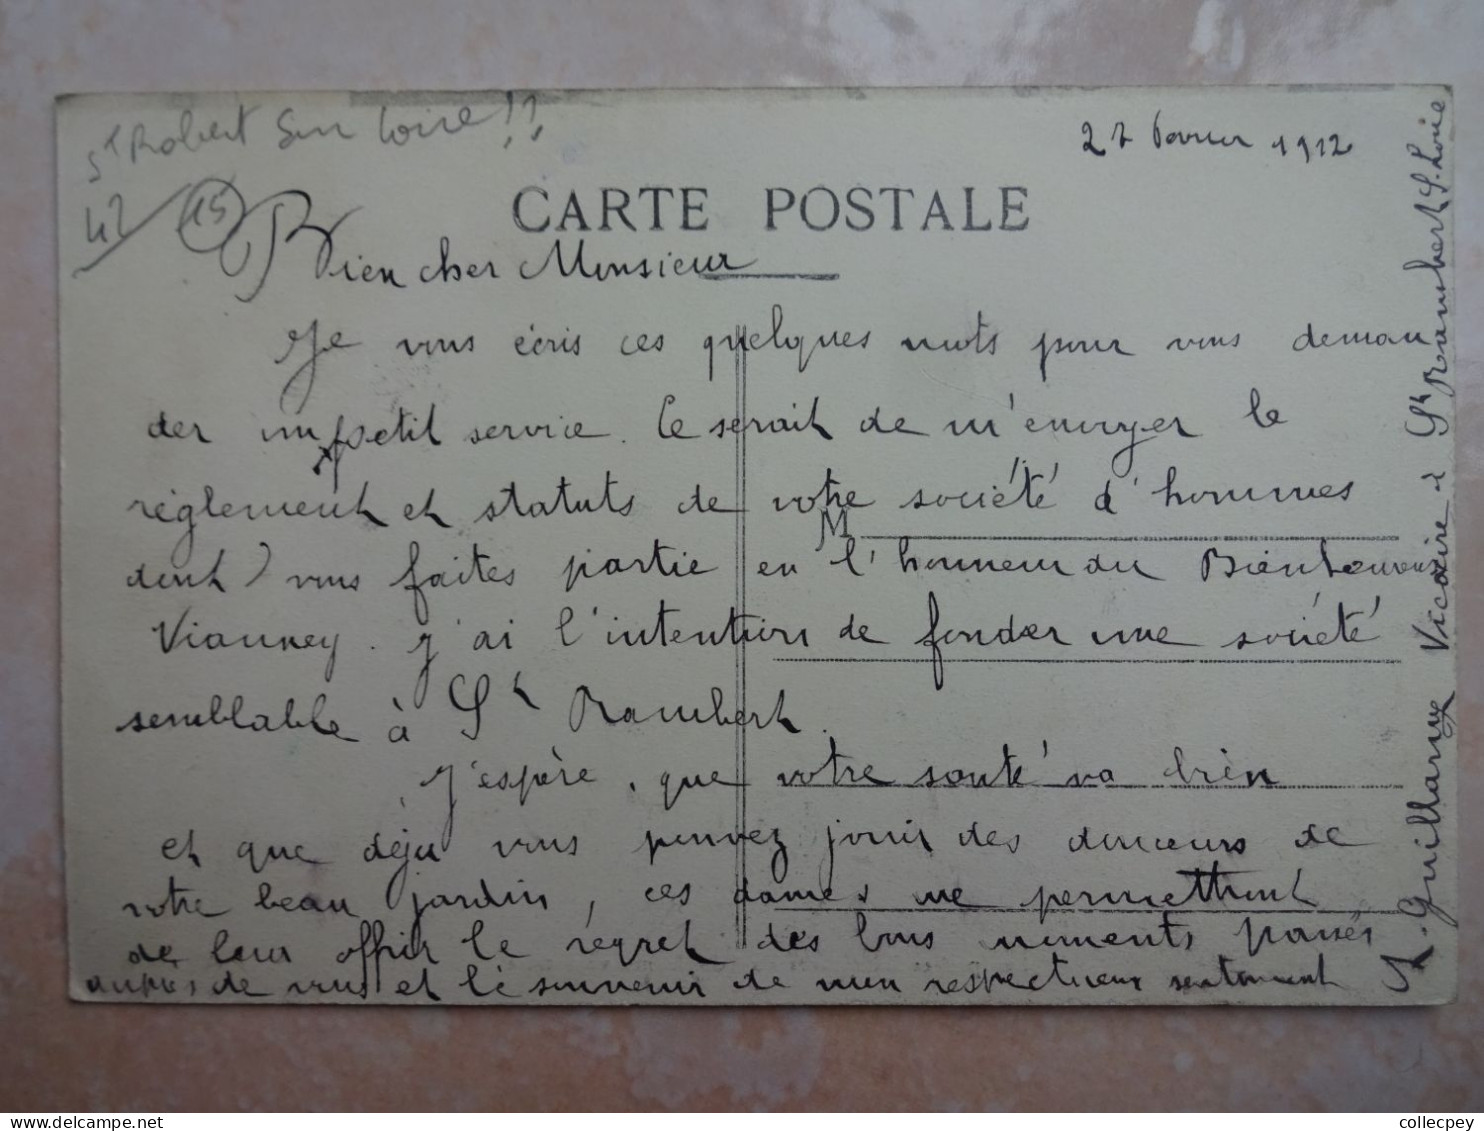 St Robert Sur Loire !!
42 15
27 fevrier 1912
CARTE POSTALE
Bien cher Monsieur
Je vous écris ces quelques mots pour vous deman
der un petit service. Ce serait de m'envoyer le
règlement et statuts de votre société d'hommes
M
dont vous faites partie en l'honneur du Bienheureux
Vianney. J'ai l'intention de fonder une société
semblable à St Rambert.
J'espère, que votre santé va bien
et que déjà vous pouvez jouir des douceurs de
votre beau jardin, ces dames me permettront
de leur offrir le regret des bons moments passés
auprès de vous et le souvenir de mon respectueux sentiment
A. Guillarme Vicaire à St Rambert s. Loire
collecpey